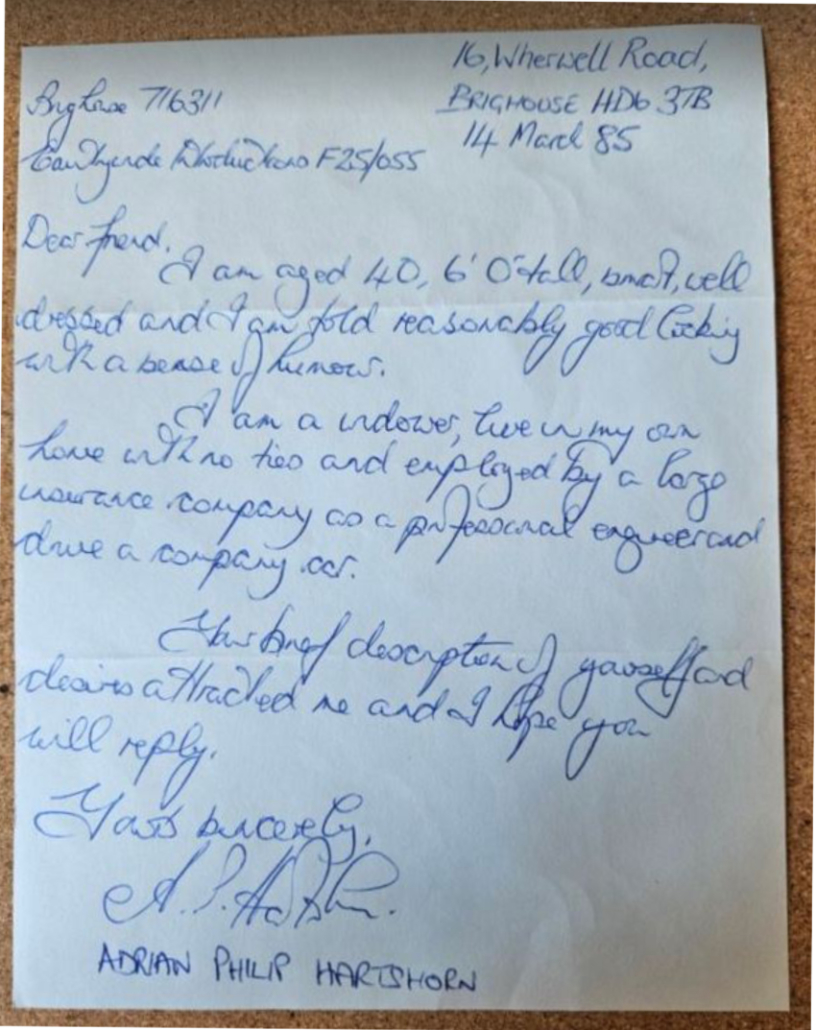 16, Wherwell Road,
Brighouse 716311
BRIGHOUSE HD6 3TB
14 March 85
Introductions F25/055
Dear friend,
I am aged 40, 6' 0" tall, smart, well
dressed and I am told reasonably good looking
with a sense of humour.
I am a widower, live in my own
home with no ties and employed by a large
insurance company as a professional engineer and
drive a company car.
Your brief description of yourself and
desires attracted me and I hope you
will reply.
Yours sincerely,
A. P. Hartshorn.
ADRIAN PHILIP HARTSHORN